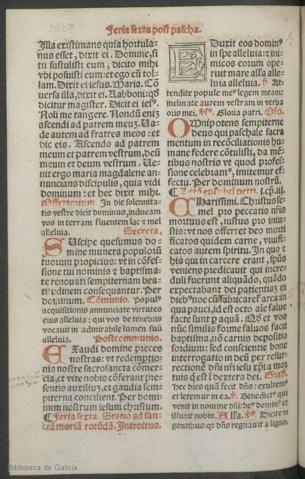 Feria sexta post pascha.
Illa existimans quia hortula
nus esset, dixit ei. Domine, si
tu sustulisti eum, dicito mihi
vbi posuisti eum: et ego eũ tol
lam. Dixit ei iesus. Maria. Cõ
uersa illa, dixit ei. Rabboni: qd
dicitur magister. Dicit ei iesus.
Noli me tangere. Nondũ enim
ascendi ad patrem meũ. Ua
de autem ad fratres meos: et
dic eis. Ascendo ad patrem
meum et patrem vestrum, deũ
meum et deum vestrum. Ue
nit ergo maria magdalene an
nuncians discipulis, quia vidi
dominum: et hec dixit mihi.
Offertorium. In die solennita
tis vestre dicit dominus, inducam
vos in terram fluentem lac et mel
alleluia. Secreta.
Suscipe quesumus do
mine munera populorũ
tuorum propicius: vt in cõfes
sione tui nominis et baptisma
te renouati sempiternam bea
titudinem consequantur. Per
dominum. Cõmunio. Populus
acquisitionis annunciate virtutes
eius alleluia: qui vos de tenebris
vocauit in admirabile lumen suũ
alleluia. Postcommunio.
Exaudi domine preces
nostras: vt redemptio
nis nostre sacrosancta cõmer
cia, et vite nobis cõferant pre
sentis auxilium, et gaudia sempi
terna concilient. Per domi
num nostrum iesum christum
Feria sexta. Statio ad san
ctã mariã rotũdã. Introitus.
Eduxit eos dominus
in spe alleluia: et ini
micos eorum ope
ruit mare alla alle
luia alleluia. ps. At
tendite popule meus legem meam:
inclinate aurem vestram in verba
oris mei. Gloria patri. Orõ.
Omnipotens sempiterne
deus qui paschale sacra
mentum in recõciliationis hu
mane federe cõtulisti, da mẽ
tibus nostris vt quod profes
sione celebramus, imitemur ef
fectu. Per dominum nostrũ.
Charissimi. Christus se
mel pro peccatis nrĩs
mortuus est, iustus pro iniu
stis: vt nos offerret deo morti
ficatos quidem carne, viuifi
catos autem spiritu. In quo et
his qui in carcere erant, spũs
veniens predicauit qui incre
duli fuerant aliquãdo, quãdo
expectabant dei patientiam in
diebus noe cũ fabricaret arca: in
qua pauci, id est octo aĩe salue
facte sunt per aquã. Qd et vos
nũc similis forme saluos facit
baptisma, nõ carnis depositio
sordium: sed conscientie bone
interrogatio in deũ per resur
rectionẽ dñi nrĩ iesu xpi: a mor
tuis qui est ĩ dextera dei. Grad.
Hec dies quã fecit dñs: exultemus
et letemur in ea. Benedictus qui
venit in nomine dñi: deus dominus et
illuxit nobis. Alla. Dicite in
gentibus: quia dñs regnauit a ligno.
Biblioteca de Galicia